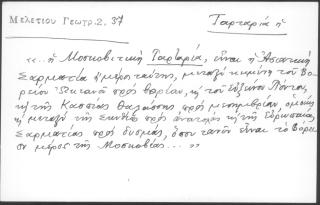 Μελετίου Γεωγρ. 2. 37
Ταρταρία ἡ
«..ἡ Μοσχοβιτικὴ Ταρταρία, εἶναι ἡ Ἀσιατικὴ
Σαρματία ἢ μέρος ταύτης, μεταξὺ κειμένη τοῦ Βο-
ρείου Ὠκεανοῦ πρὸς βορῖαν, κὴ τοῦ Εὐξείνου Πόντου,
κὴ τῆς Κασπίας θαλάσσης πρὸς μεσημβρίαν, ὁμοίως
κὴ μεταξὺ τῆς Σκυθίας πρὸς ἀνατολὰς κὴ τῆς Εὐρωπαίας
Σαρματίας πρὸς δυσμάς, ὅσον τανῦν εἶναι τὸ Βόρει-
ον μέρος τῆς Μοσχοβίας...»